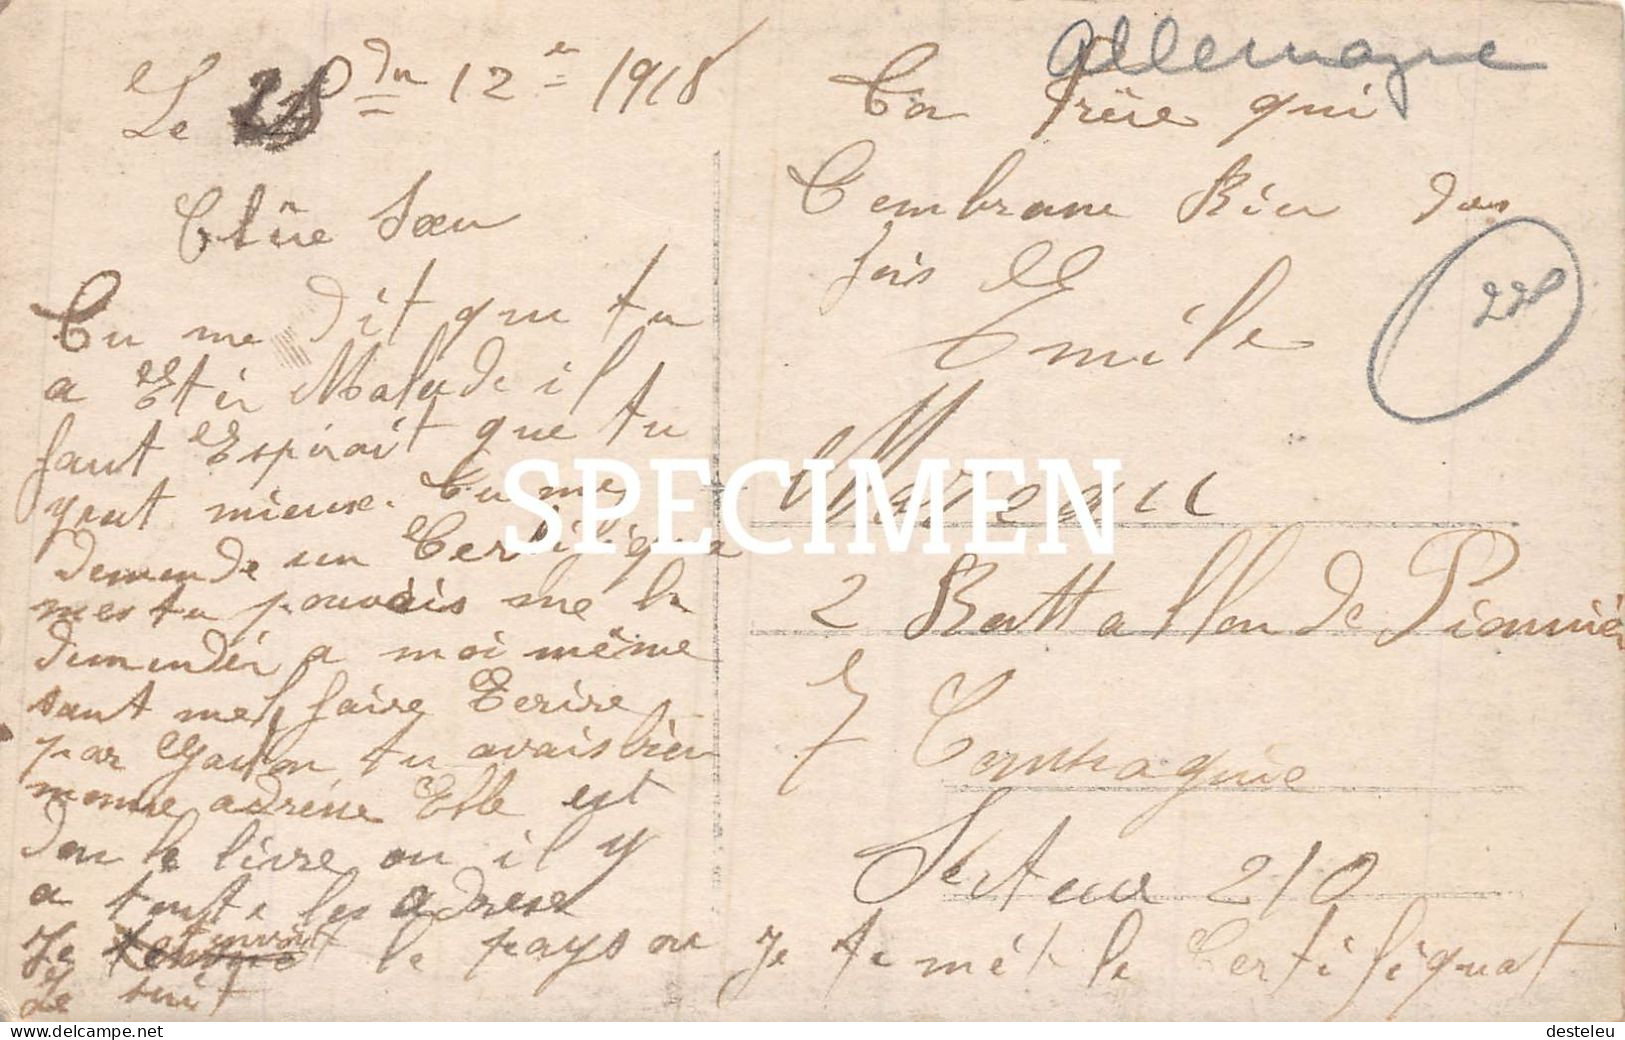 Le 28 du 12 e 1918
Chère Sœur
Tu me dit que tu
a Etér Malade il
faut Espérait que tu
mieux. Tu me
demende un Certifiqua
mes tu pouvais me le
demender a moi même
sant me faire Ecrire
par Gaston tu avais bien
monne adrèse Elle est
dan le livre ou il y
a toute les adrese
Je t'envoit le pays ou
Je suit
Allemagne
Ton Frère qui
t'embrane Bien des
fois
Emile
228
2 Battallon de Pionnier
7 Compagnie
Secteur 210
Je te mét le Certifiquat
SPECIMEN
www.delcampe.net
desteleu